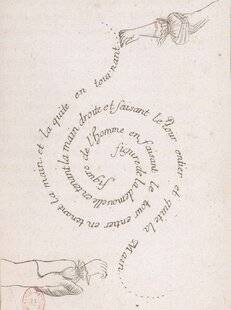 figure de l'homme en faisant le tour entier en tenant la main et la quite en tournant
figure de la demoiselle en tenant la main droite et faisant le Tour entier et quite la Main